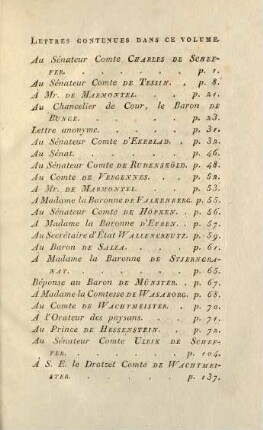 LETTRES CONTENUES DANS CE VOLUME.
Au Sénateur Comte CHARLES DE SCHEF-
FER. . . . . . p. 1.
Au Sénateur Comte DE TESSIN. . p. 8.
A Mr. DE MARMONTEL. . . . p. 21.
Au Chancelier de Cour, le Baron DE
BUNGE. . . . . . p. 23.
Lettre anonyme. . . . . p. 31.
Au Sénateur Comte D'EKEBLAD. . p. 32.
Au Sénat. . . . . . p. 46.
Au Sénateur Comte DE RUDENSKÖLD. p. 48.
Au Comte DE VERGENNES. . . p. 52.
A Mr. DE MARMONTEL. . . . p. 53.
A Madame la Baronne DE FALKENBERG. p. 55.
Au Sénateur Comte DE HÖPKEN. . p. 56.
A Madame la Baronne D'EUBEN. . p. 57.
Au Secrétaire d'État WALLENCREUTZ. p. 59.
Au Baron DE SALZA. . . . p. 61.
A Madame la Baronne DE STIERNGRA-
NAT. . . . . . p. 65.
Réponse au Baron DE MÜNSTER. . p. 67.
A Madame la Comtesse DE WASABORG. p. 68.
Au Comte DE WACHTMEISTER. . p. 70.
A l'Orateur des paysans. . . p. 71.
Au Prince DE HESSENSTEIN. . p. 72.
Au Sénateur Comte ULRIK DE SCHEF-
FER. . . . . . p. 104.
À S. E. le Drotzet Comte DE WACHTMEI-
STER. . . . . . p. 137.